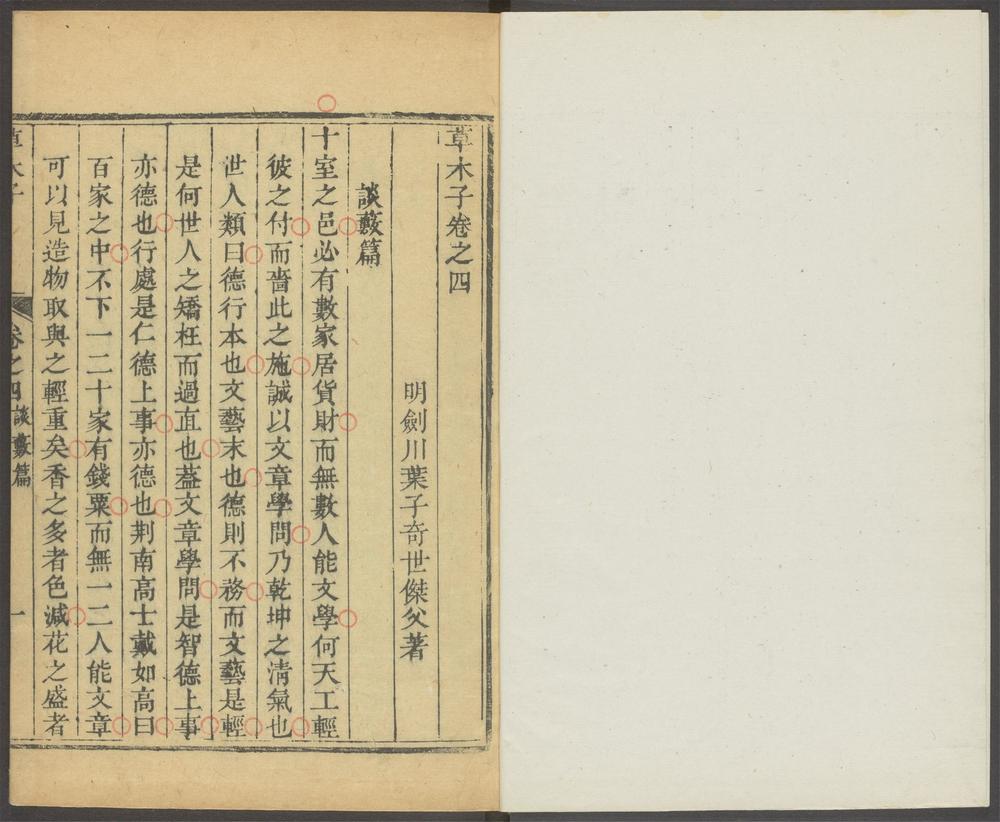 草木子卷之四
明劍川葉子奇世傑父著
談藪篇
十室之邑必有數家居貨財而無數人能文學何天工輕
彼之付而嗇此之施誠以文章學問乃乾坤之淸氣也
世人類曰德行本也文藝末也德則不務而文藝是輕
是何世人之矯枉而過直也葢文章學問是智德上事
亦德也行處是仁德上事亦德也荆南高士戴如高曰
百家之中不下一二十家有錢粟而無一二人能文章
可以見造物取與之輕重矣香之多者色減花之盛者
草木子
卷之四 談藪篇
一